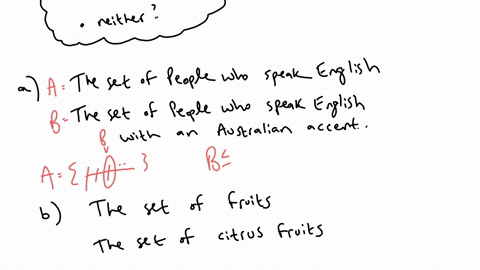 • neither?
a) A = The set of People who speak English
B = The set of People who speak English
B with an Australian accent..
A = { }
B ⊆
b) The set of fruits
The set of citrus fruits